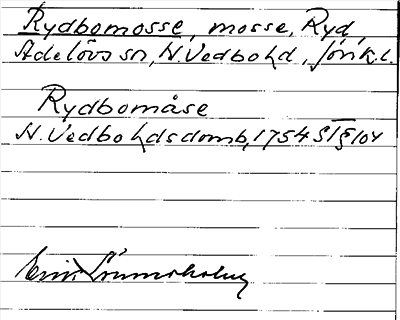 Rydbomosse, mosse, Ryd,
Adelövs sn, N. Vedbo hd, Jönk. l.
Rydbomåse
N. Vedbo hds domb, 1754 S1 § 104